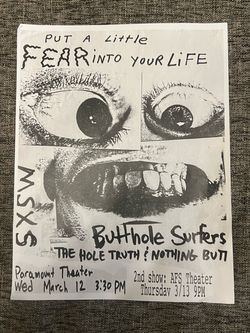 PUT A LiTTLE
FEAR INTO YOUR LiFE
MSXS
Butthole Surfers
THE HOLE TRUTH & NOTHING BUTT
Paramount Theater
Wed March 12 3:30 PM
2nd show: AFS Theater
Thursday 3/13 9PM